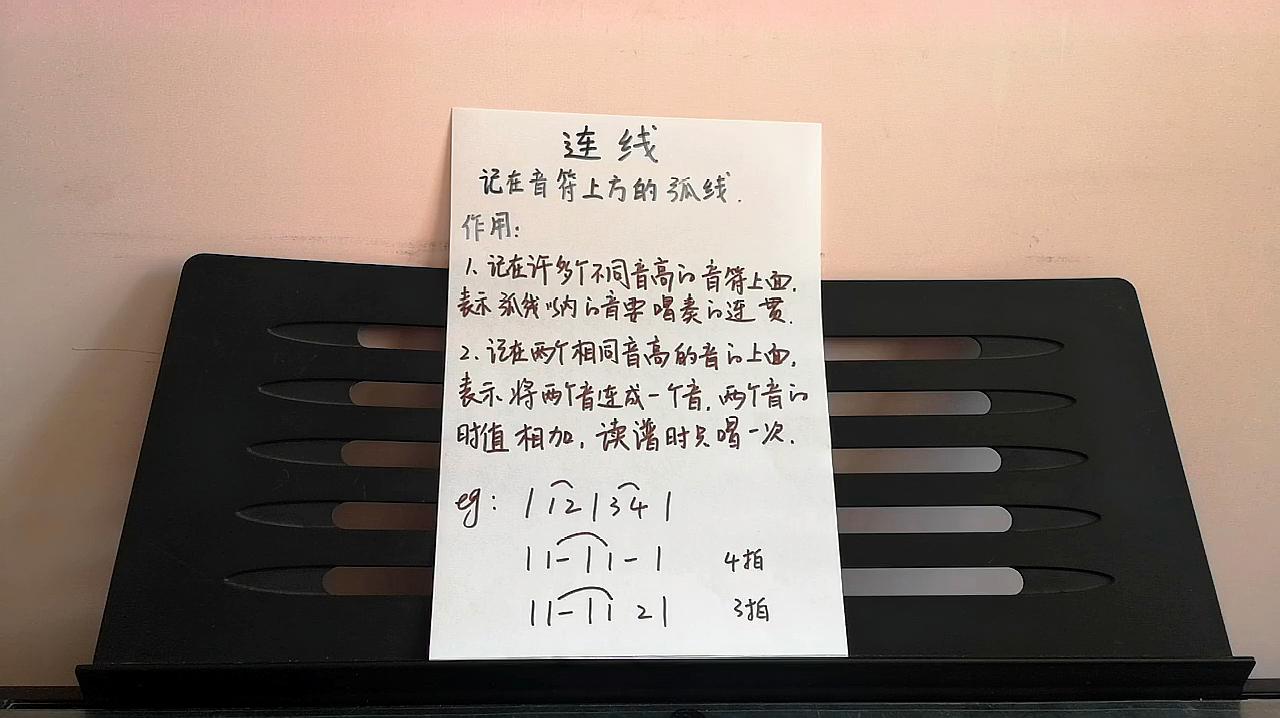 连线
记在音符上方的弧线.
作用:
1、记在许多个不同音高的音符上面,
表示弧线以内的音要唱奏的连贯.
2、记在两个相同音高的音的上面,
表示将两个音连成一个音,两个音的
时值相加,读谱时只唱一次.
eg: | 1 2 | 3 4 |
| 1 - | 1 - | 4拍
| 1 - | 1 2 | 3拍